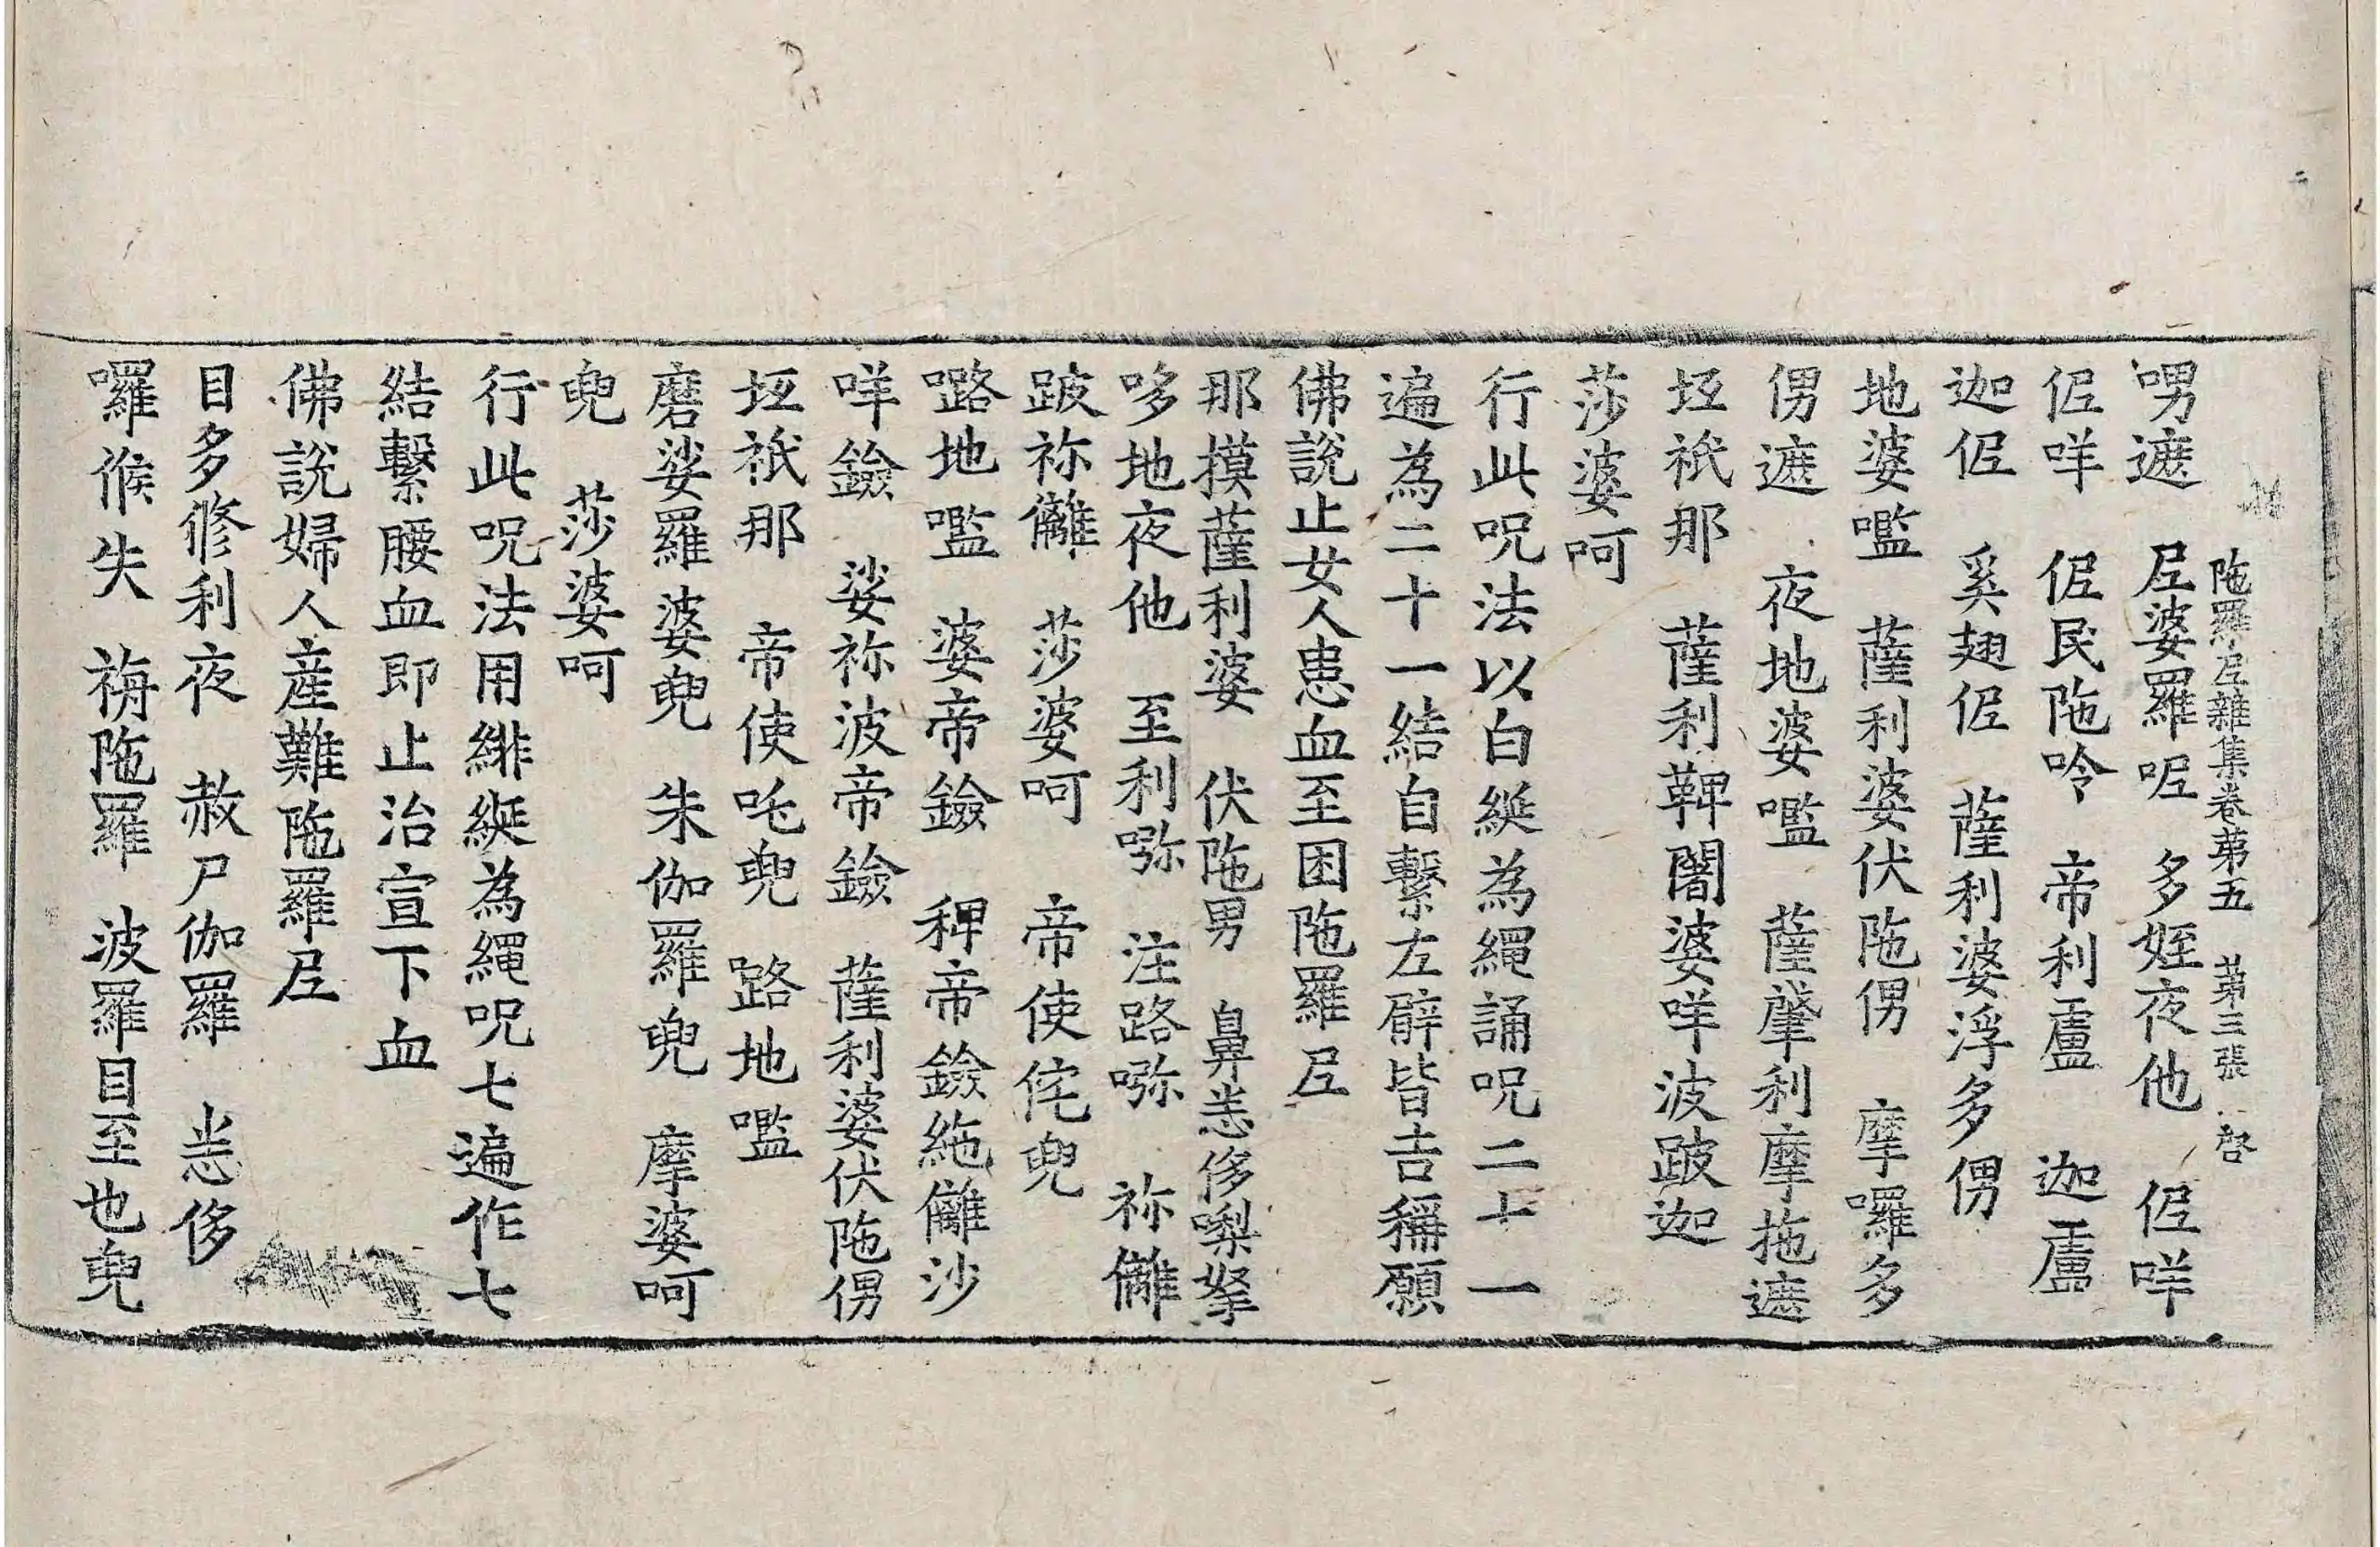 陁羅𡰱雜集卷苐五　苐三張　啓
㗄遮　𡰱婆羅呢　多姪夜他　伲咩
伲咩　伲民陁呤　帝利盧　迦盧
迦伲　奚翅伲　薩利婆浮多㑲
地婆㘕　薩利婆伏陁㑲　摩囉多
㑲遮　夜地婆㘕　薩肇利摩拖遮
坻祇那　薩利鞞闍婆咩波跛迦
莎婆呵
行此呪法以白綖為繩誦呪二十一
遍為二十一結自繫左臂皆吉稱願
佛說止女人患血至困陁羅𡰱
那摸薩利婆　伏陁男　鼻恙侈㗚拏
哆地夜他　至利㘑　注路㘑　祢㒧
跛祢㒧　莎婆呵　帝使侘兜
㗉地㘕　婆帝鐱　稗帝鐱絁㒧沙
咩鐱　娑祢波帝鐱　薩利婆伏陁㑲
坻祇那　帝使吒兜　路地㘕
磨娑羅婆兜　朱伽羅兜　摩婆呵
兜　莎婆呵
行此呪法用緋綖為繩呪七遍作七
結繫腰血即止治宣下血
佛說婦人産難陁羅𡰱
目多修利夜　赦尸伽羅　恙侈
囉候失　栴陁羅　波羅目至也兜